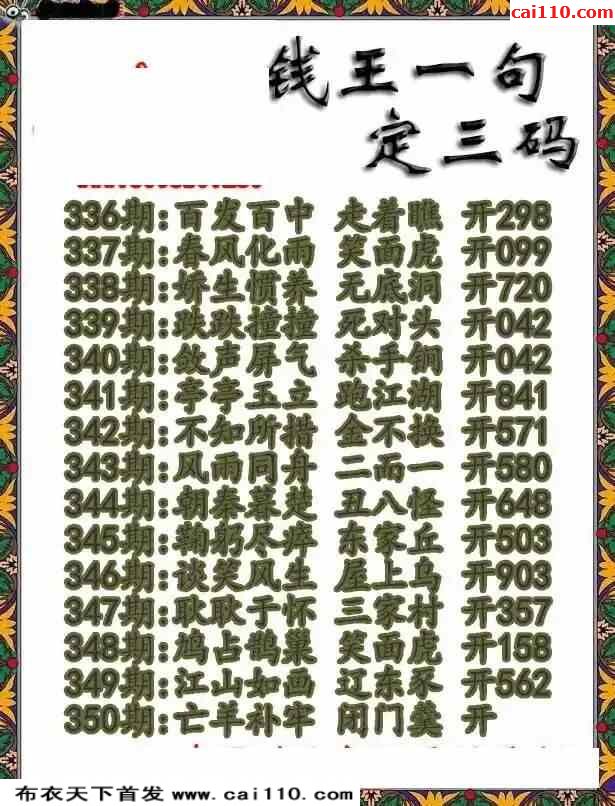 cai110.com
钱王一句
定三码
336期:百发百中 走着瞧 开298
337期:春风化雨 笑面虎 开099
338期:娇生惯养 无底洞 开720
339期:跌跌撞撞 死对头 开042
340期:敛声屏气 杀手锏 开042
341期:亭亭玉立 跑江湖 开841
342期:不知所措 金不换 开571
343期:风雨同舟 二而一 开580
344期:朝秦暮楚 丑八怪 开648
345期:鞠躬尽瘁 东家丘 开503
346期:谈笑风生 屋上乌 开903
347期:耿耿于怀 三家村 开357
348期:鸠占鹊巢 笑面虎 开158
349期:江山如画 辽东豕 开562
350期:亡羊补牢 闭门羹 开
布衣天下首发 www.cai110.com